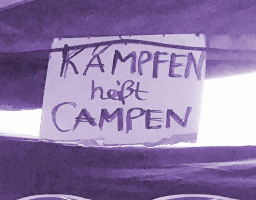 KÄMPFEN
heißt
CAMPEN